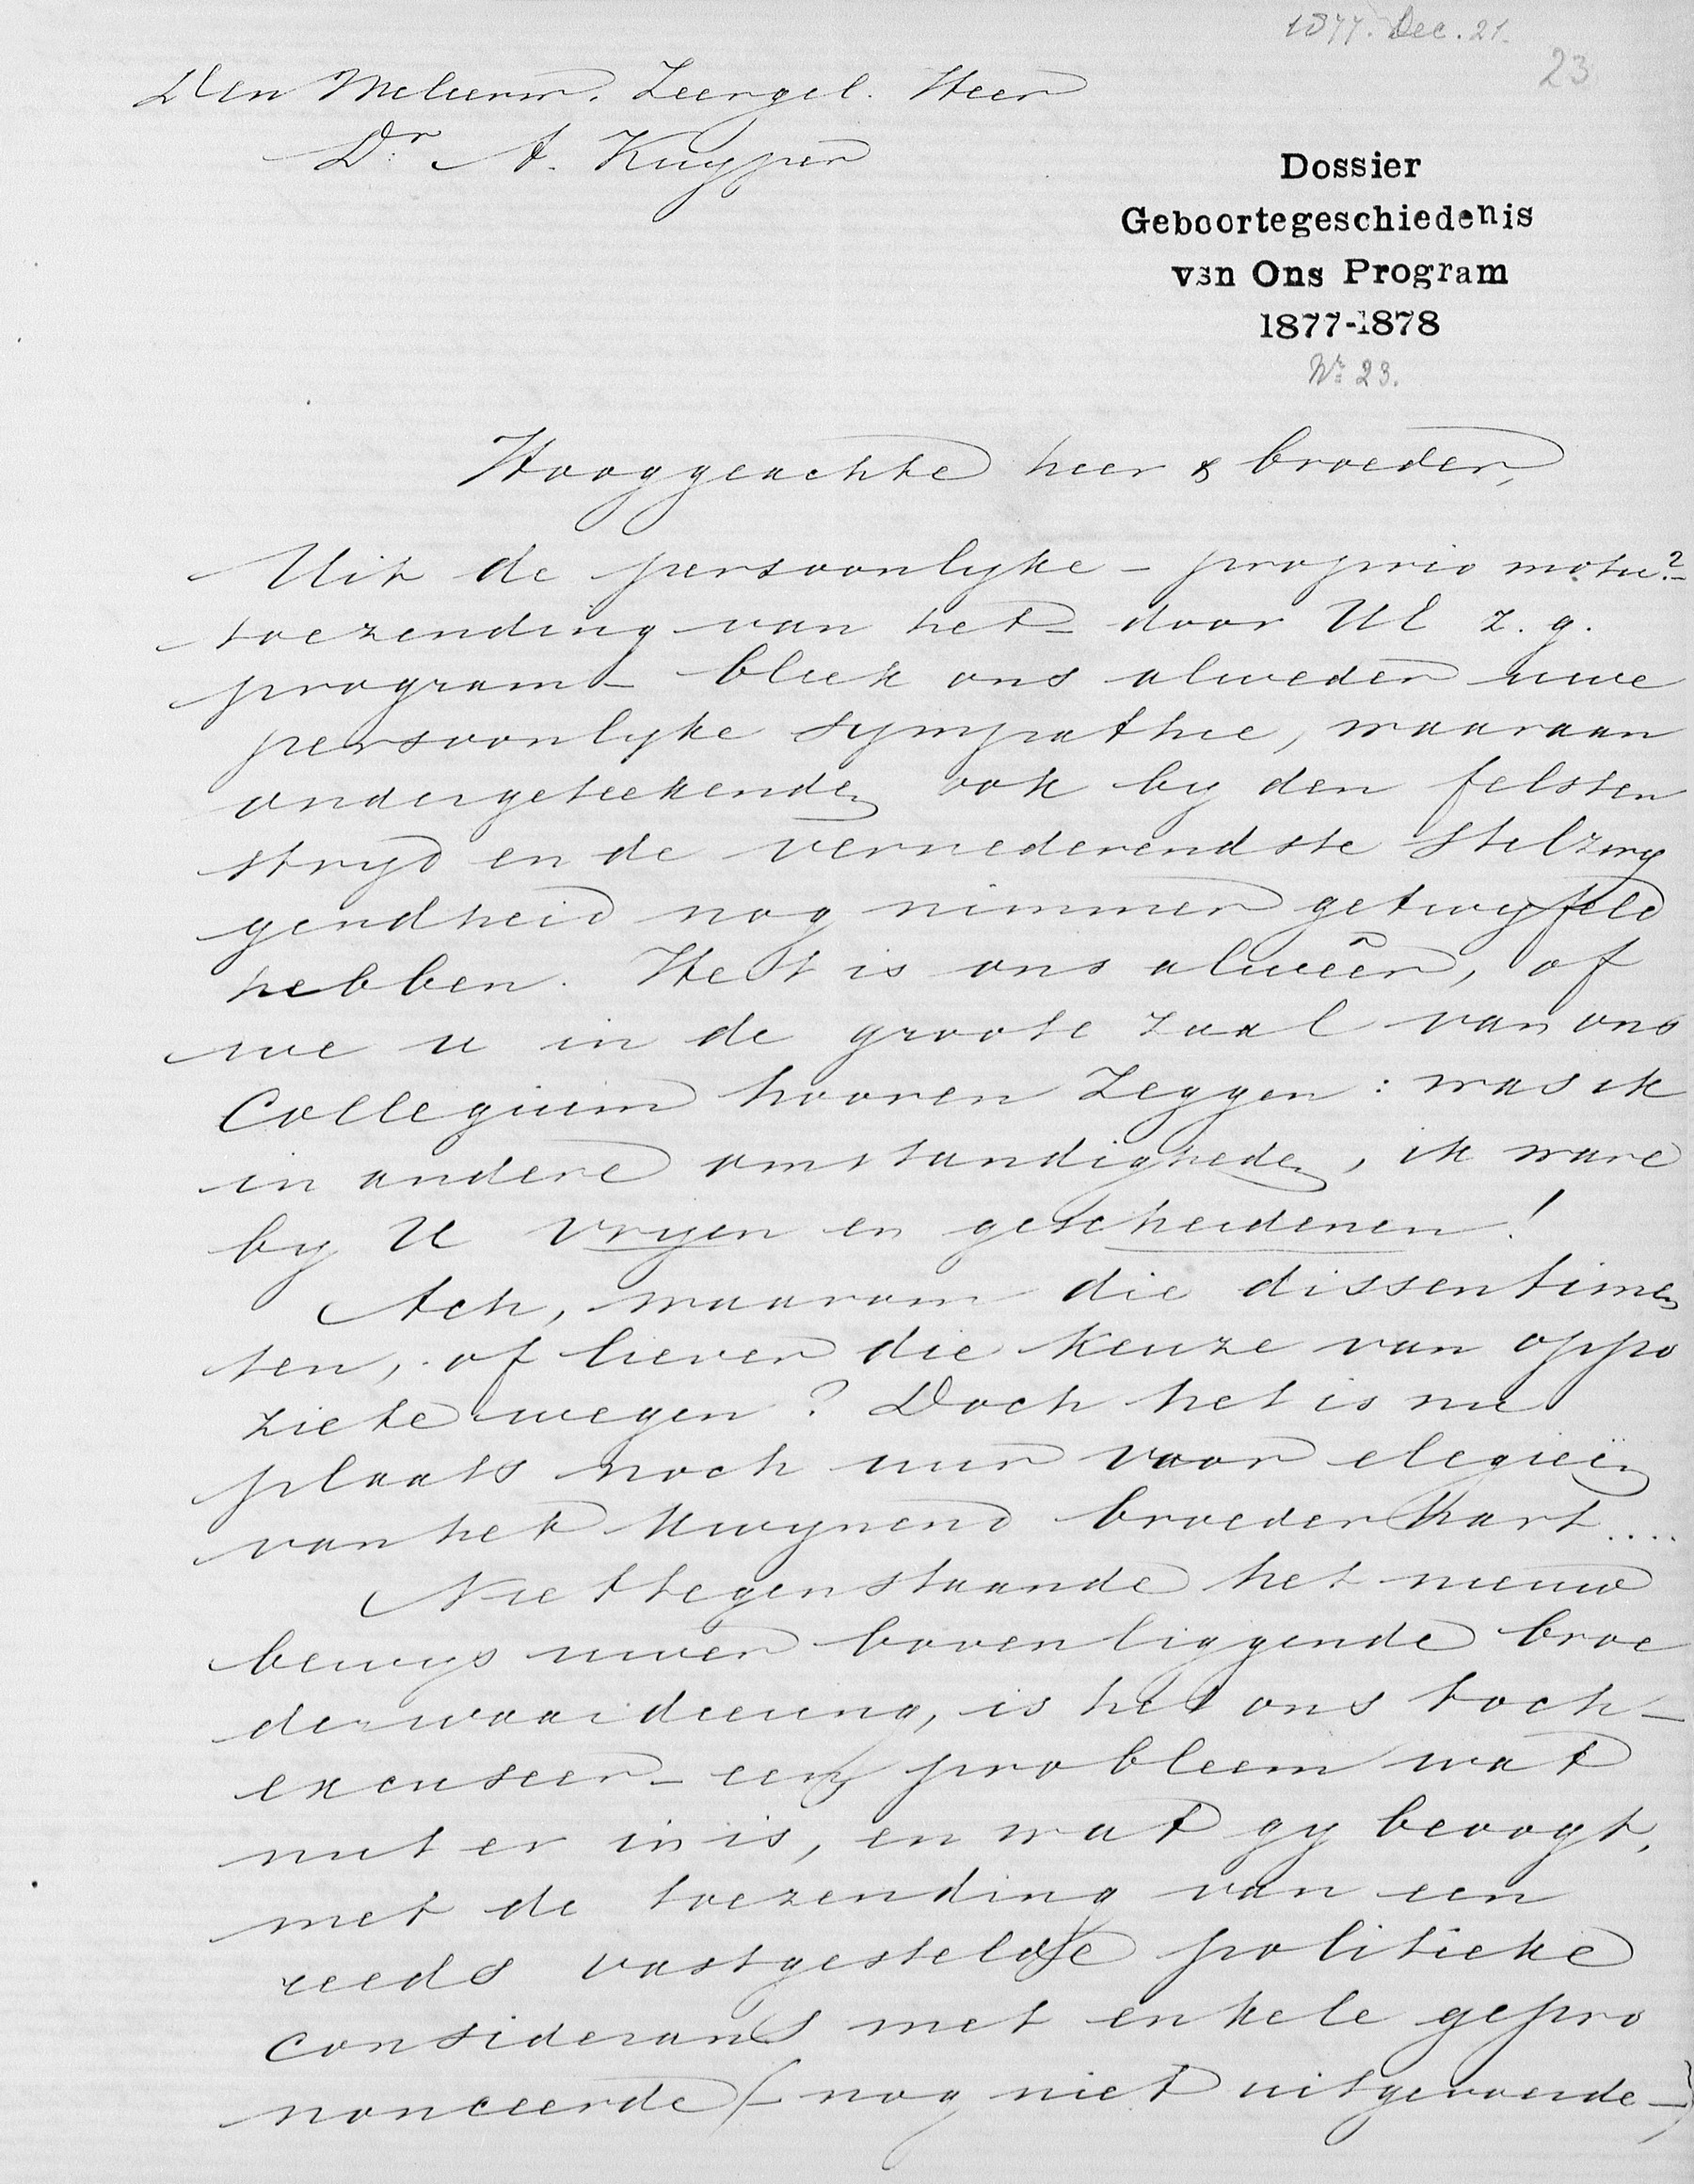 1877. Dec. 21.
23
Den Weleerw. Zeergel. Heer
Dr. A. Kuyper
Dossier
Geboortegeschiedenis
van Ons Program
1877-1878
No 23.
Hooggeachte heer & broeder,
Uit de persoonlyke - proprio motu? -
toezending van het - door Ul z.g.
program - bleek ons alweder uwe
persoonlyke sympathie, waaraan
ondergeteekenden ook by den felsten
stryd en de vernederendste stelzwy
gendheid nog nimmer getwyfeld
hebben. Het is ons alweêr, of
we u in de groote zaal van ons
Collegium hooren zeggen: was ik
in andere omstandigheden, ik ware
by U vryen en gescheidenen!
Ach, waarom die dissentimen
ten, of liever die keuze van oppo
ziete wegen? Doch het is nu
plaats noch uur voor elegieën
van het kwynend broederhart....
Niettegenstaande het nieuw
bewys uwer bovenliggende broe
derwaardeering, is het ons toch -
excuseer - een probleem wat
nut er in is, en wat gy beoogt,
met de toezending van een
reeds vastgestelde politieke
considerans met enkele gepro
nonceerde (- nog niet uitgevoerde -)